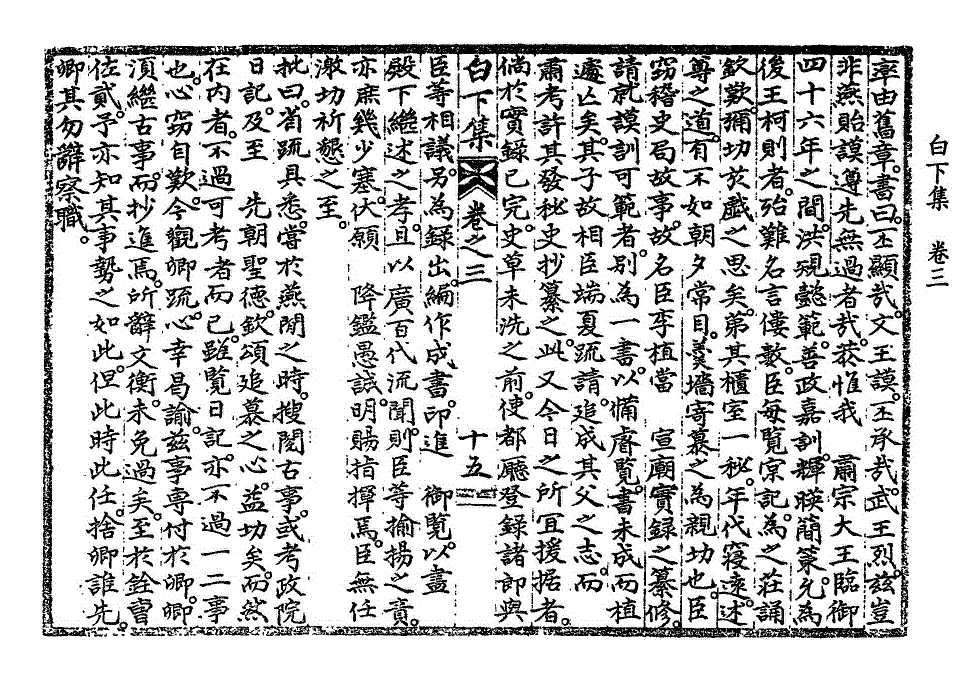 白下集　卷三
率由舊章。書曰。丕顯哉。文王謨。丕承哉。武王烈。玆豈
非燕貽謨遵先無過者哉。恭惟我　肅宗大王臨御
四十六年之間。洪規懿範。善政嘉訓。輝暎簡策。允爲
後王柯則者。殆難名言僂數。臣每覽宗記。爲之莊誦
欽歎。彌切於戲之思矣。第其櫃室一秘。年代寖遠。述
尊之道。有不如朝夕常目。羹墻寄慕之爲親切也。臣
窃稽史局故事。故名臣李植當　宣廟實錄之纂修。
請就謨訓可範者。別爲一書。以備睿覽。書未成而植
遽亡矣。其子故相臣端夏疏請。追成其父之志。而
肅考許其發秘史抄纂之。此又今日之所宜援據者。
倘於實錄已完。史草未洗之前。使都廳登錄諸郞與
白下集　卷之三　十五
臣等相議。另爲錄出。編作成書。印進　御覽。以盡
殿下繼述之孝。且以廣百代流聞。則臣等揄揚之責。
亦庶幾少塞。伏願　降鑑愚誠。明賜指揮焉。臣無任
激切祈懇之至。
批曰。省疏具悉。嘗於燕閒之時。搜閱古事。或考政院
日記。及至　先朝聖德。欽頌追慕之心。益切矣。而然
在內者。不過可考者而已。雖覽日記。亦不過一二事
也。心窃自歎。今觀卿疏。心幸曷諭。玆事專付於卿。卿
須繼古事。而抄進焉。所辭文衡。未免過矣。至於銓曹
佐貳。予亦知其事勢之如此。但此時此任。捨卿誰先。
卿其勿辭察職。